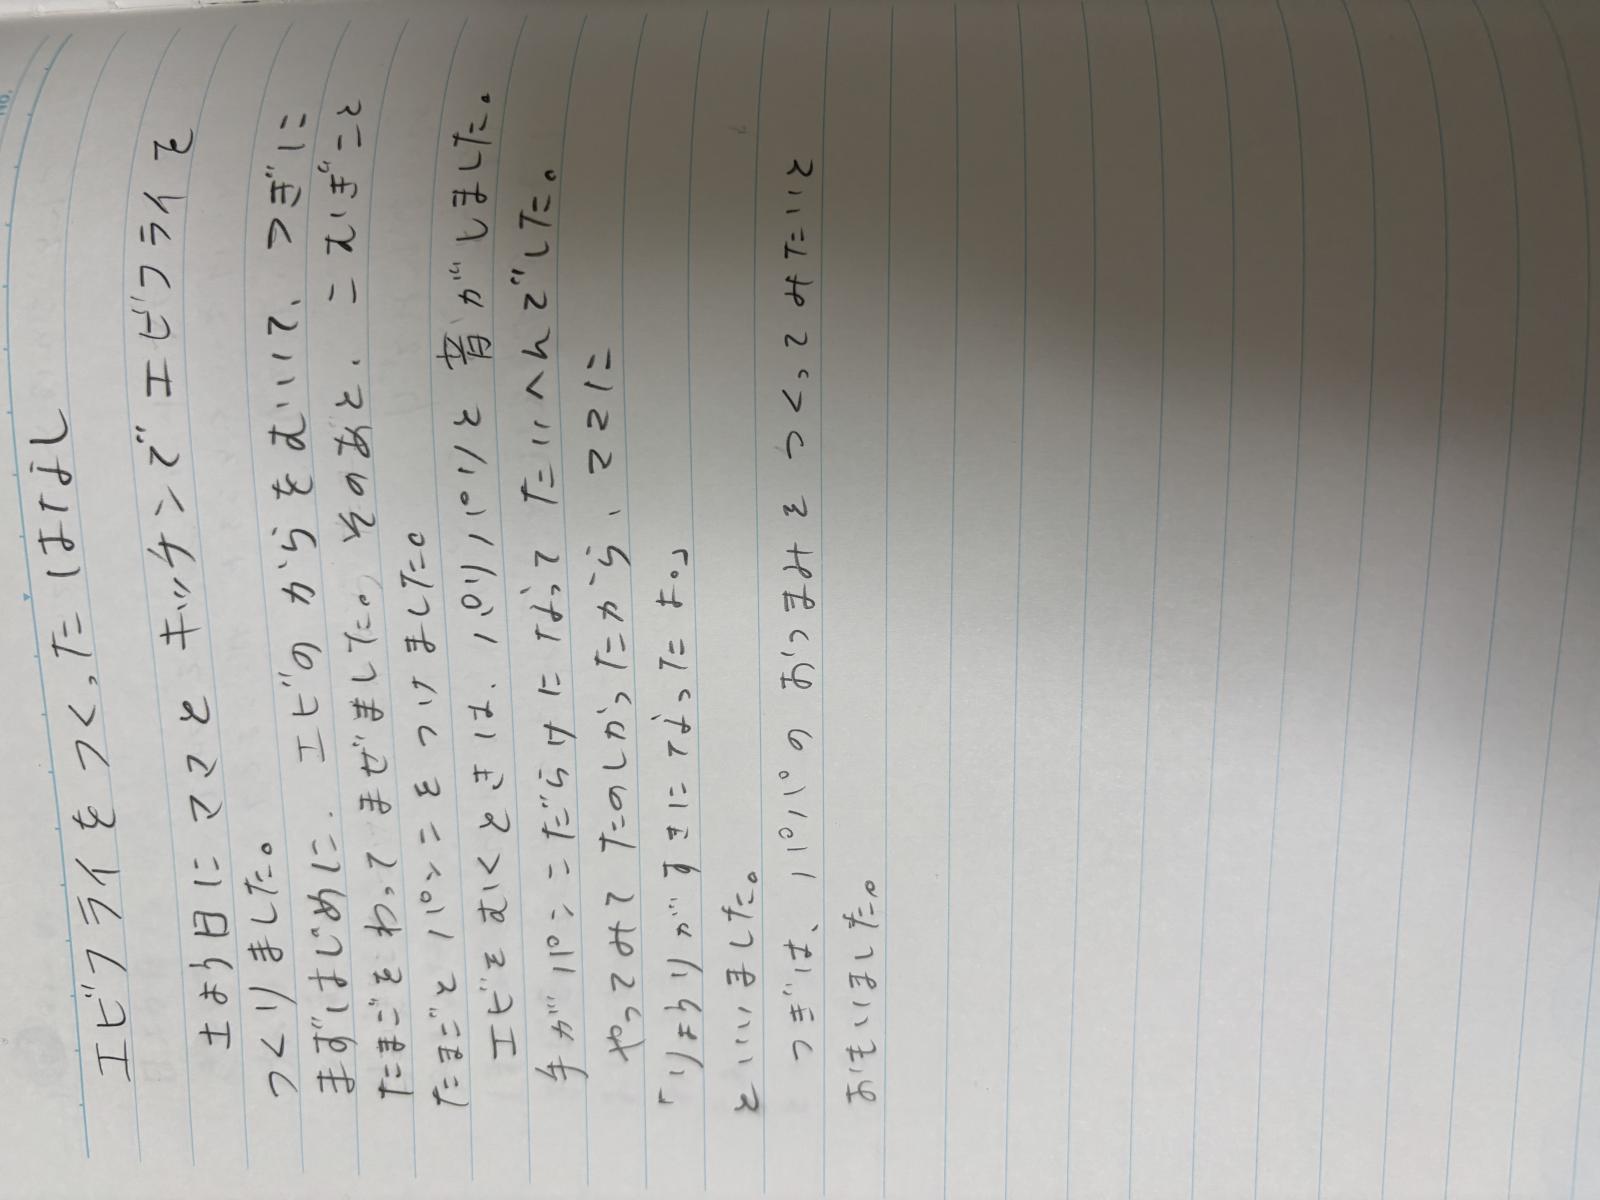 エビフライをつくったはなし
土よう日にママとキッチンでエビフライを
つくりました。
まずはじめに、エビのからをむいて、つぎに
たまごをわってまぜました。そのあと、こむぎこと
たまごとパンこをつけました。
エビをむくときは、パリパリと音がしました。
手がパンこだらけになってたいへんでした。
やってみてたのしかったから、ママに
「りょうりがすきになったよ。」
といいました。
つぎは、パパのおつまみをつくってみたいと
おもいました。